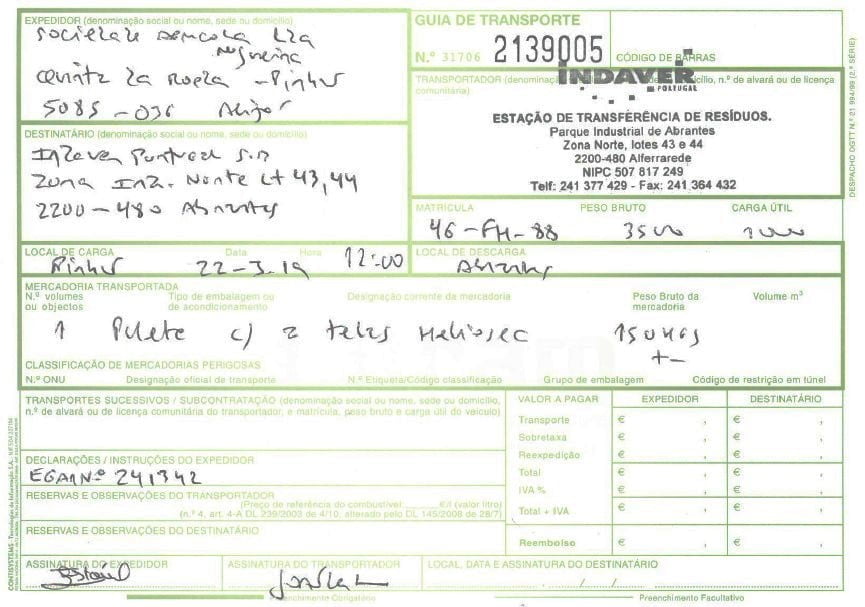 EXPEDIDOR (denominação social ou nome, sede ou domicílio)
Quinta da
5085-036 Alijó
GUIA DE TRANSPORTE
N.º 31706 2139005 CÓDIGO DE BARRAS
DESTINATÁRIO (denominação social ou nome, sede ou domicílio)
Indaver Portugal S.A
Zona Ind. Norte Lt 43,44
2200-480 Abrantes
TRANSPORTADOR (denominação social ou nome, sede ou domicílio, n.º de alvará ou de licença comunitária)
INDAVER
PORTUGAL
ESTAÇÃO DE TRANSFERÊNCIA DE RESÍDUOS.
Parque Industrial de Abrantes
Zona Norte, lotes 43 e 44
2200-480 Alferrarede
NIPC 507 817 249
Telf: 241 377 429 - Fax: 241 364 432
MATRÍCULA PESO BRUTO CARGA ÚTIL
46-FH-88 3500
LOCAL DE CARGA Data Hora
22-3.19 12:00
LOCAL DE DESCARGA
Abrantes
MERCADORIA TRANSPORTADA
N.º volumes ou objectos
Tipo de embalagem ou de acondicionamento
Designação corrente da mercadoria
Peso Bruto da mercadoria
Volume m³
1 Palete c/ 2 telas
+-
CLASSIFICAÇÃO DE MERCADORIAS PERIGOSAS
N.º ONU Designação oficial de transporte N.º Etiqueta/Código classificação Grupo de embalagem Código de restrição em túnel
TRANSPORTES SUCESSIVOS / SUBCONTRATAÇÃO (denominação social ou nome, sede ou domicílio,
n.º de alvará ou de licença comunitária do transportador, e matrícula, peso bruto e carga útil do veículo)
DECLARAÇÕES / INSTRUÇÕES DO EXPEDIDOR
EGAR Nº 241342
RESERVAS E OBSERVAÇÕES DO TRANSPORTADOR
(Preço de referência do combustível: €/l (valor litro)
(n.º 4, art. 4-A DL 239/2003 de 4/10, alterado pelo DL 145/2008 de 28/7)
RESERVAS E OBSERVAÇÕES DO DESTINATÁRIO
VALOR A PAGAR EXPEDIDOR DESTINATÁRIO
Transporte € , € ,
Sobretaxa € , € ,
Reexpedição € , € ,
Total € , € ,
IVA % € , € ,
Total + IVA € , € ,
Reembolso € , € ,
ASSINATURA DO EXPEDIDOR ASSINATURA DO TRANSPORTADOR LOCAL, DATA E ASSINATURA DO DESTINATÁRIO
Preenchimento Obrigatório Preenchimento Facultativo
DESPACHO DGTT N.º 21 994/99 (2.ª SÉRIE)